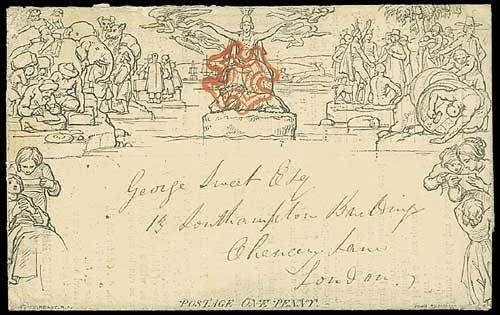 George Sweet Esq
13 Southampton Building
Chancery Lane
London
POSTAGE ONE PENNY.